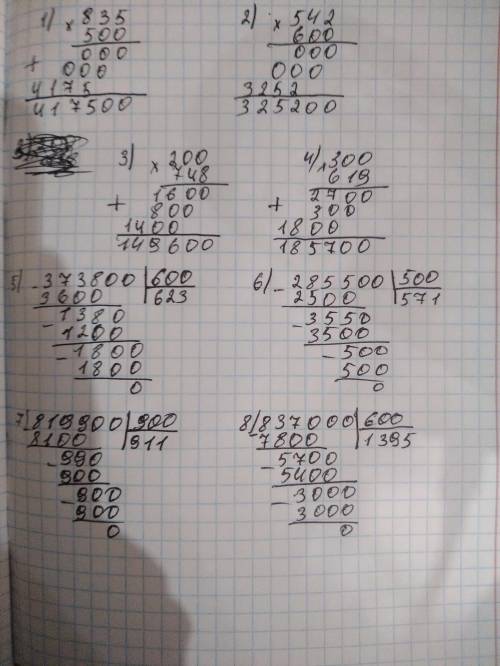 1) × 835
500
000
+ 000
4175
417500
2) × 542
600
000
000
3252
325200
3) × 200
748
1600
+ 800
1400
149600
4) × 300
619
2700
+ 300
1800
185700
5) - 373800 | 600
3600 | 623
- 1380
1200
- 1800
1800
0
6) - 285500 | 500
2500 | 571
- 3550
3500
- 500
500
0
7) 819900 | 900
8100 | 911
- 990
900
- 900
900
0
8) 837000 | 600
- 7800 | 1395
- 5700
5400
- 3000
3000
0